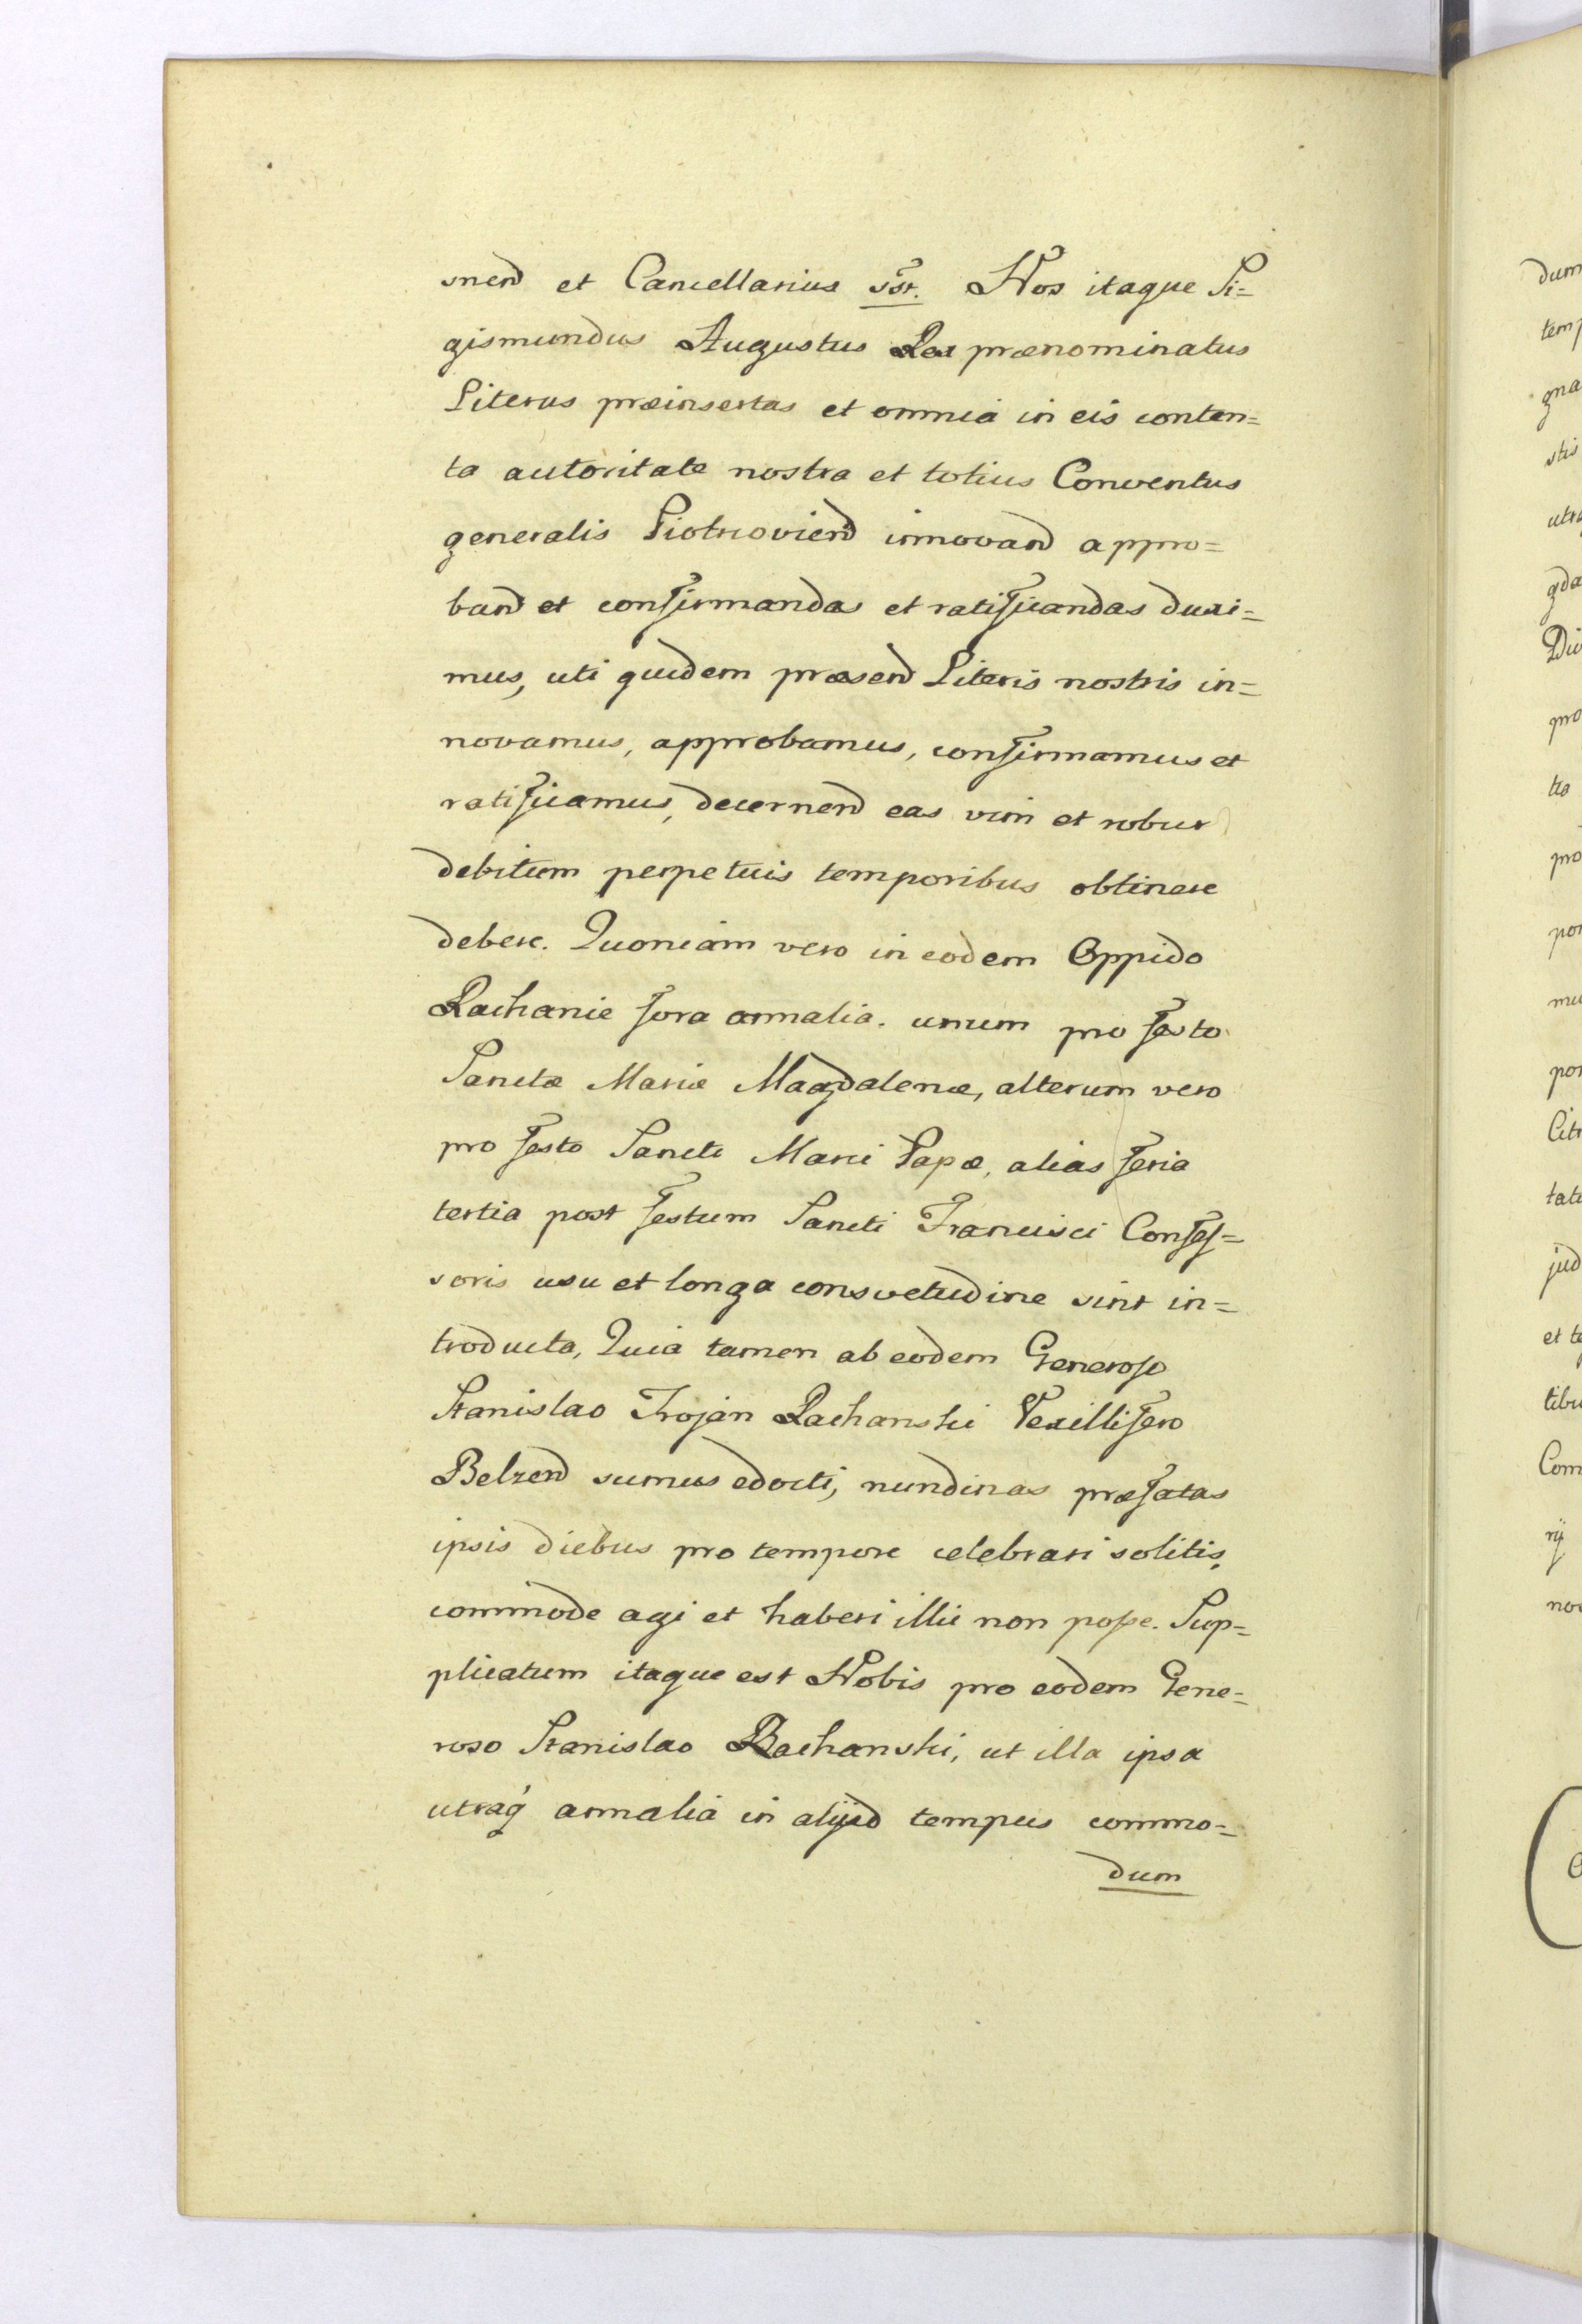 snen et Cancellarius sst. Nos itaque Si=
gismundus Augustus Rex prænominatus
Literas præinsertas et omnia in eis conten=
ta autoritate nostra et totius Conventus
generalis Piotrcovien innovand appro=
band et confirmandas et ratificandas duxi=
mus, uti quidem præsen Literis nostris in=
novamus, approbamus, confirmamus et
ratificamus, decernen eas vim et robur
debitum perpetuis temporibus obtinere
debere. Quoniam vero in eodem Oppido
Rachanie fora annalia. unum pro festo
Sanctæ Mariæ Magdalenæ, alterum vero
pro festo Sancti Marci Papæ, alias feria
tertia post festum Sancti Francisci Confes=
soris usu et longa consvetudine sint in=
troducta, Quia tamen ab eodem Generoso
Stanislao Trojan Rachanski Vexillifero
Belzen sumus edocti, nundinas præfatas
ipsis diebus pro tempore celebrari solitis,
commode agi et haberi illic non posse. Sup=
plicatum itaque est Nobis pro eodem Gene=
roso Stanislao Rachanski, ut illa ipsa
utraq annalia in aliud tempus commo=
dum
dum
gna
stis
pro
pro
Com